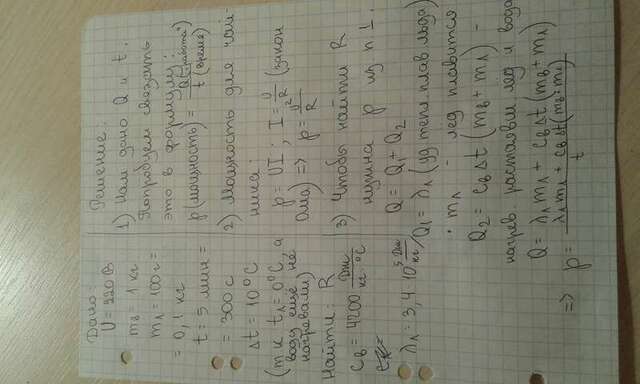 Дано:
U = 220 В
mв = 1 кг
mл = 100 г =
= 0,1 кг
t = 5 мин =
= 300 с
Δt = 10°C
(т к tл = 0°C, а
воду ещё не
нагревали)
Найти: R
cв = 4200 Дж/кг·°C
λл = 3,4·10⁵ Дж/кг
Решение:
1) Нам дано Q и t.
Попробуем связать
это в формулу:
p(мощность) = Q("работа")/t(время)
2) Мощность для чай-
ника:
p = UI; I = U/R (закон
Ома) => p = U²/R
3) Чтобы найти R
нужна p из п.1.
Q = Q₁ + Q₂
Q₁ = λл (уд. тепл. плав. льда)
· mл - лед плавится
Q₂ = cвΔt (mв + mл) -
нагрев. растаявш. лед и вода
Q = λлmл + cвΔt (mв + mл)
=> p = λлmл + cвΔt(mв + mл)/t